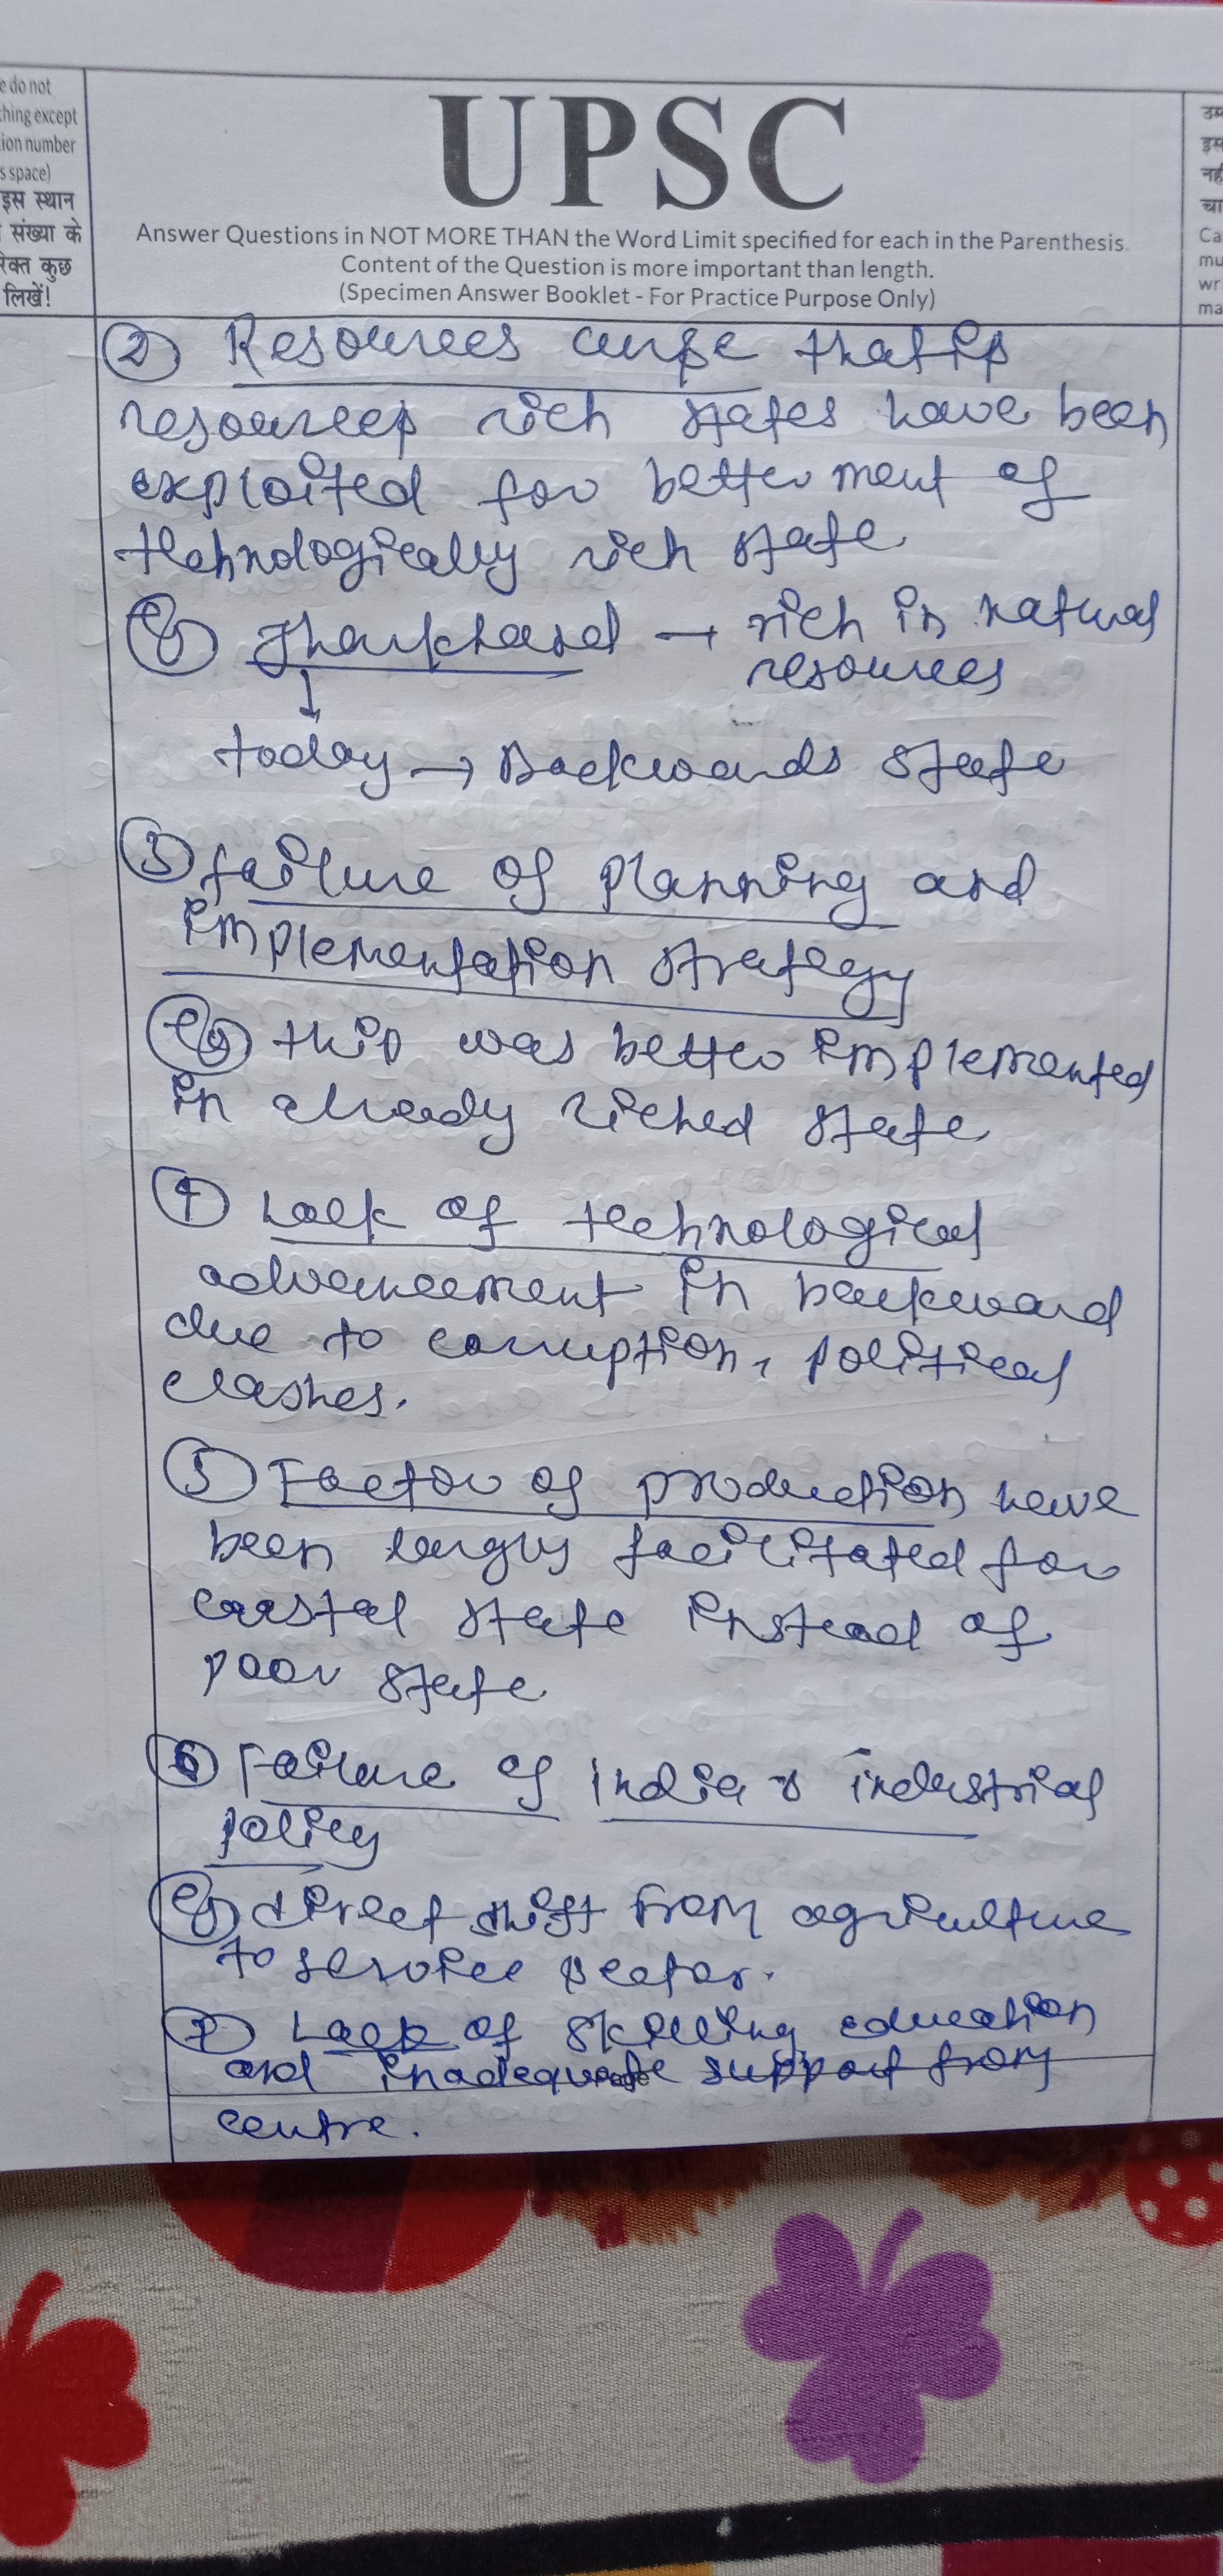 e do not
thing except
ion number
s space)
इस स्थान
संख्या के
रिक्त कुछ
लिखें!
UPSC
Answer Questions in NOT MORE THAN the Word Limit specified for each in the Parenthesis.
Content of the Question is more important than length.
(Specimen Answer Booklet - For Practice Purpose Only)
उम
इस
नहीं
चा
Ca
mu
wr
ma
② Resources curse that is
resources rich states have been
exploited for better ment of
technologically rich state
eg Jharkhand → rich in natural
resources
↓
today → Backwards state
③ failure of planning and
implementation strategy
eg this was better implemented
in already riched state
④ Lack of technological
advancement in backward
due to corruption, political
clashes.
⑤ Factor of production have
been largly facilitated for
coastal state instead of
poor state
⑥ Failure of India's industrial
policy
eg direct shift from agriculture
to service sector.
⑦ Lack of skilling education
and inadequate support from
centre.